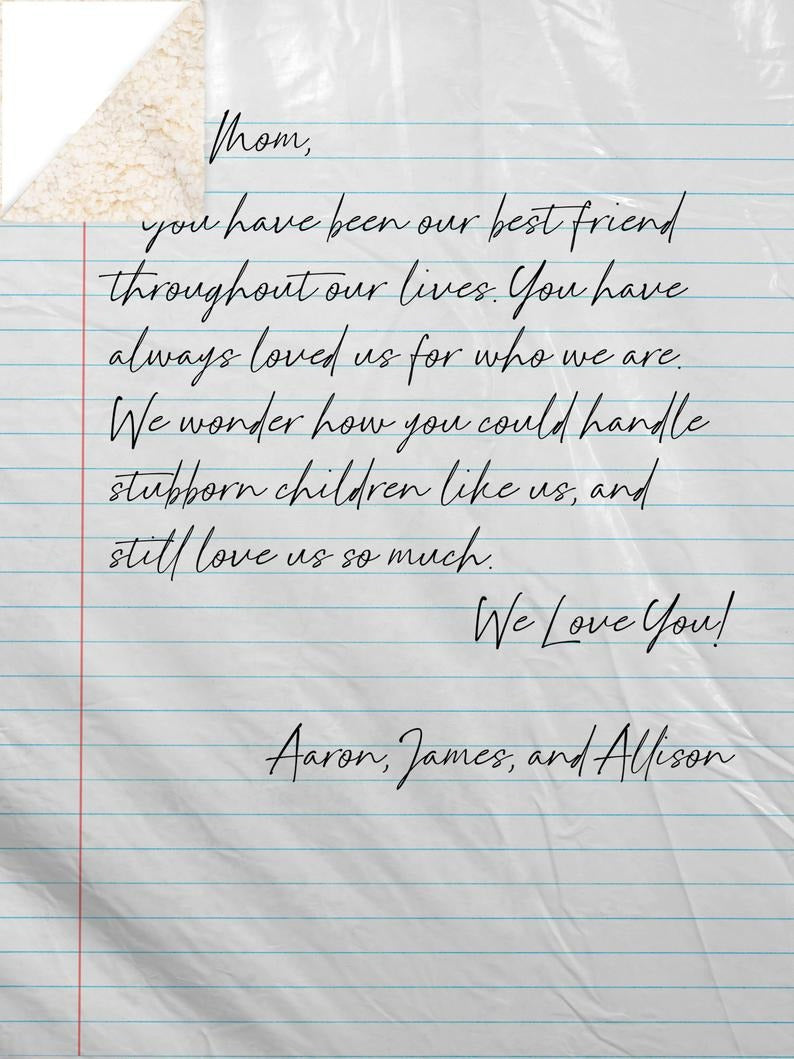 Mom,
you have been our best friend
throughout our lives. You have
always loved us for who we are.
We wonder how you could handle
stubborn children like us, and
still love us so much.
We Love You!
Aaron, James, and Allison